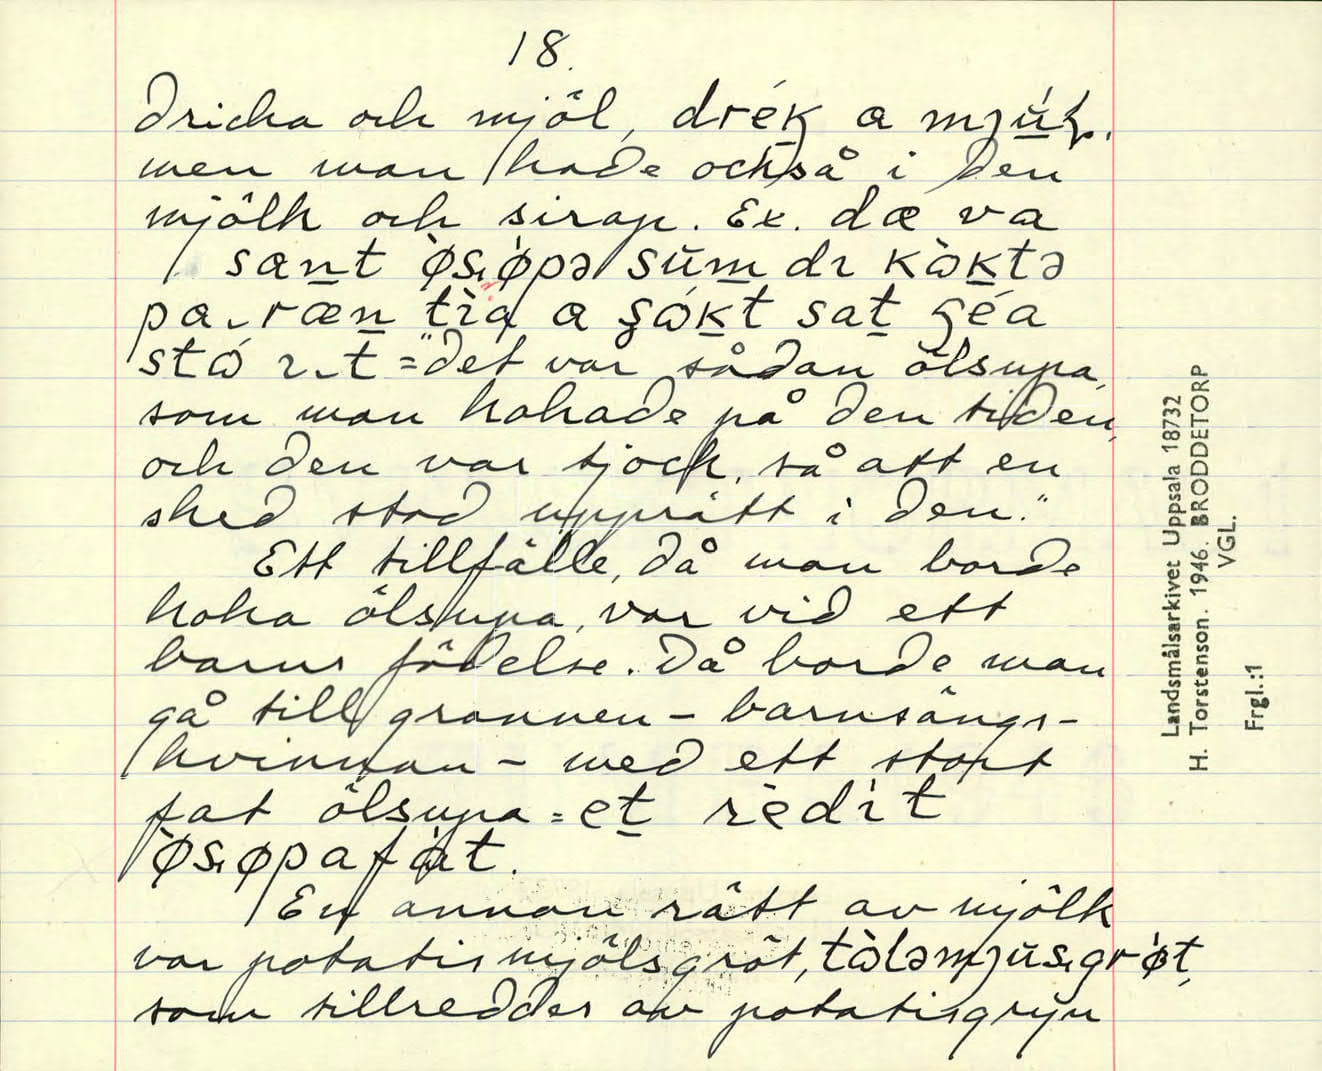 18.
dricka och mjöl, drék a mjúɫ.
men man hade också i den
mjölk och sirap. Ex. dæ va
sant ø̀sₑø̀pə sum dɩ kòktə
pa-ræn tìa a ʂókt sat ʂéa
stó ɩ-t = "det var sådan ölsupa,
som man kokade på den tiden,
och den var tjock, så att en
sked stod upprätt i den."
Ett tillfälle, då man borde
koka ölsupa, var vid ett
barns födelse. Då borde man
gå till grannen - barnsängs-
kvinnan - med ett stort
fat ölsupa = et rèdɩt
ø̀sₑøpafàt.
En annan rätt av mjölk
var potatismjölsgröt, tòləmjusₑgrø̀t,
som tillreddes av potatisgryn
Landsmålsarkivet Uppsala 18732
H. Torstenson. 1946. BRODDETORP
VGL.
Frgl.:1